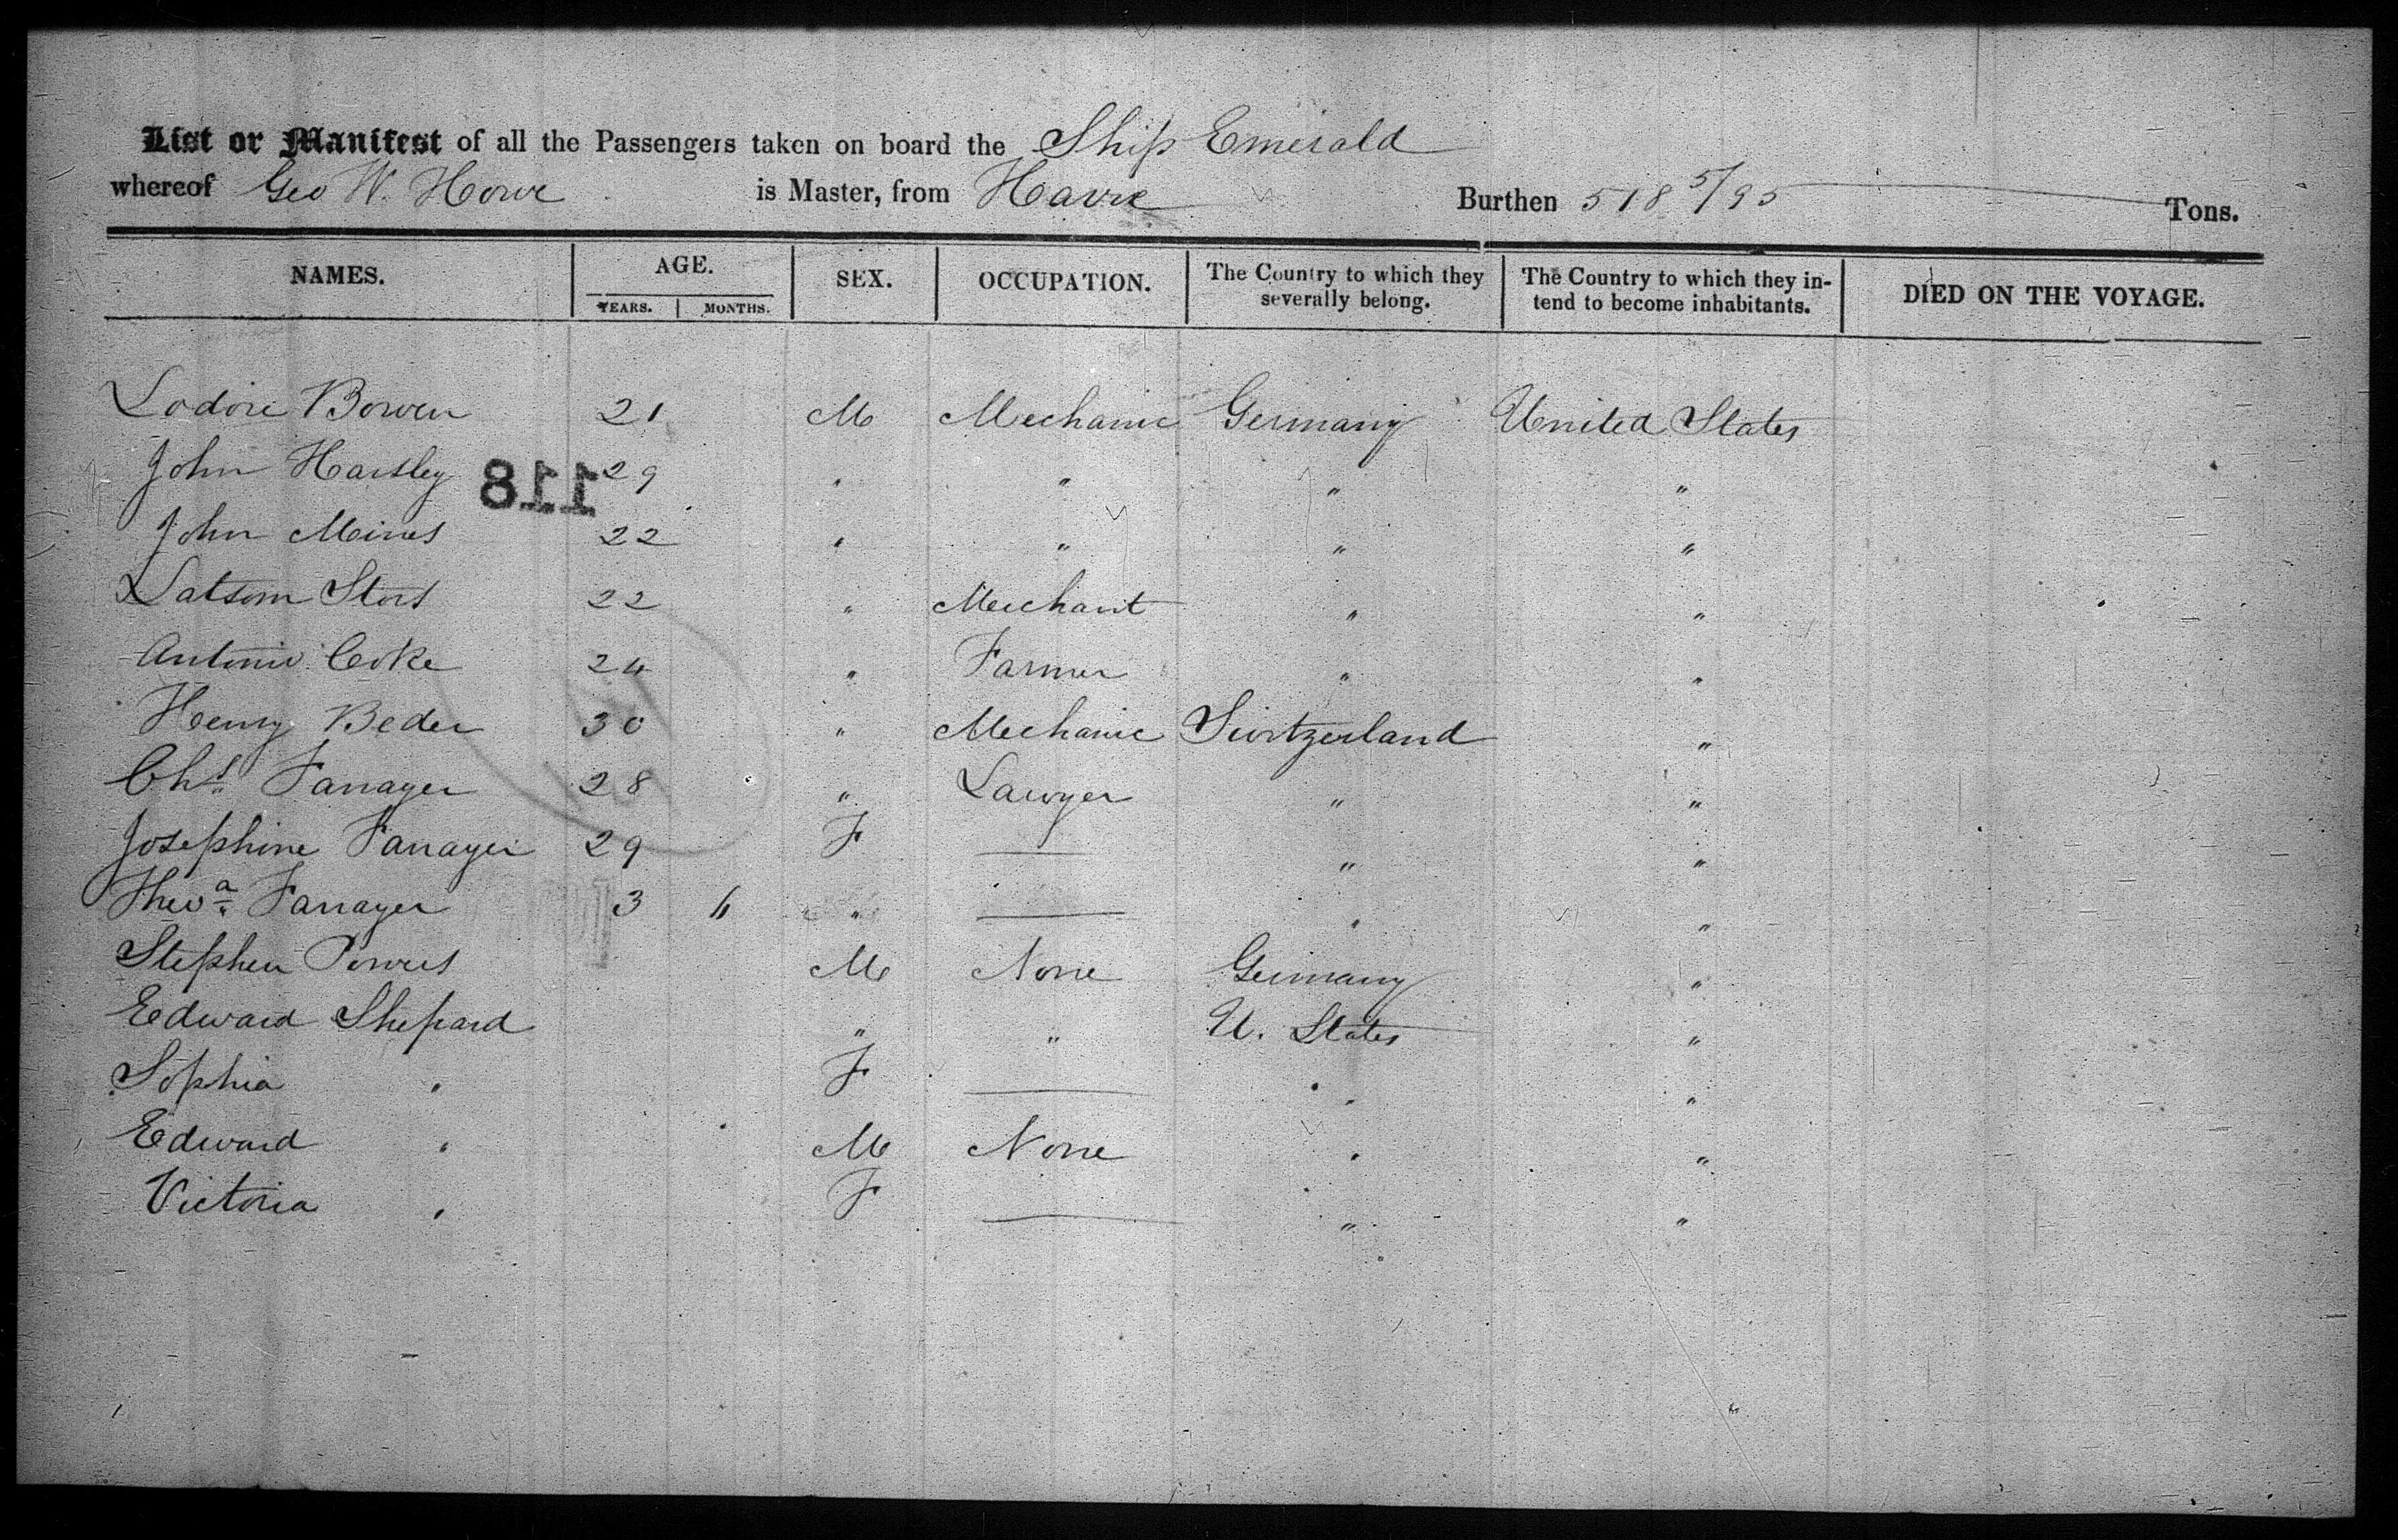 List or Manifest of all the Passengers taken on board the Ship Emerald
whereof Geo W. Howe is Master, from Havre Burthen 518 5/95 Tons.
NAMES. AGE. SEX. OCCUPATION. The Country to which they severally belong. The Country to which they intend to become inhabitants. DIED ON THE VOYAGE.
YEARS. MONTHS.
Bowen 21 M Mechanic Germany United States
John Hartley 29 " " " "
118
John Meines 22 " " " "
22 " Merchant " "
Antonio Coke 24 " Farmer " "
Henry Beder 30 " Mechanic Switzerland "
Chs Farrayer 28 " Lawyer " "
Josephine Farrayer 29 F — " "
Theoa Farrayer 3 6 " — " "
Stephen Powers M None Germany "
Edward Shepard " " U. States "
Sophia " F — " "
Edward " M None " "
Victoria " F — " "